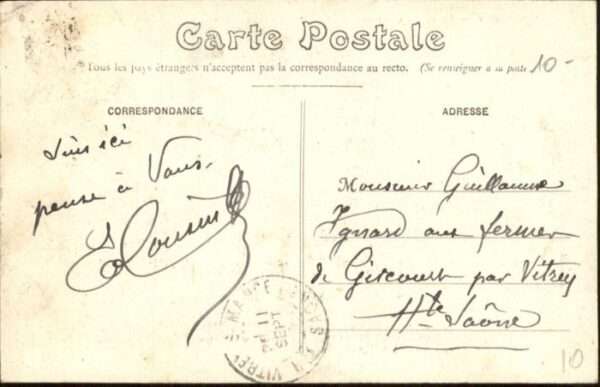 Carte Postale
Tous les pays étrangers n'acceptent pas la correspondance au recto. (Se renseigner à la poste
10-
CORRESPONDANCE
ADRESSE
Suis ici
pense à Vous.
Monsieur Guillaume
Ignard aux fermes
de Gircourt par Vitrey
Hte Saône
11
SEPT
VITREY
10